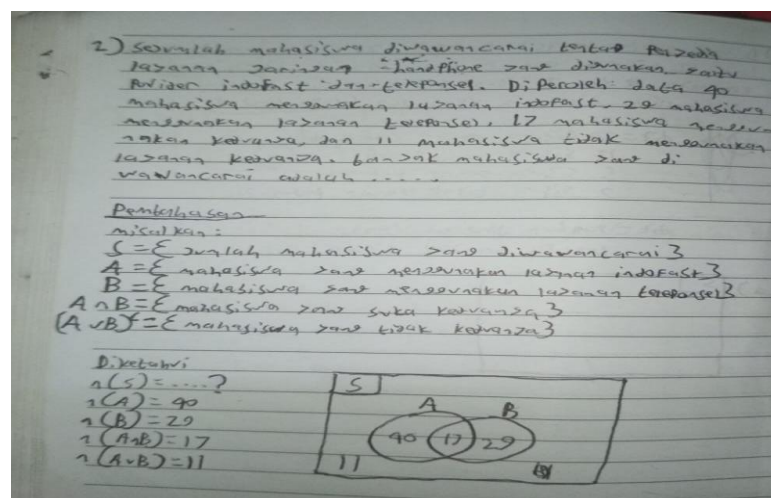 2) Sejumlah mahasiswa diwawancarai tentang penyedia
layanan jaringan handphone yang digunakan yaitu
Provider indofast dan teleponsel. Diperoleh data 40
mahasiswa menggunakan layanan indofast, 29 mahasiswa
menggunakan layanan teleponsel, 17 mahasiswa menggu
nakan keduanya, dan 11 mahasiswa tidak menggunakan
layanan keduanya. banyak mahasiswa yang di
wawancarai adalah .....
Pembahasan
misalkan:
S = { jumlah mahasiswa yang diwawancarai }
A = { mahasiswa yang menggunakan layanan indofast }
B = { mahasiswa yang menggunakan layanan teleponsel }
A ∩ B = { mahasiswa yang suka keduanya }
(A ∪ B)ᶜ = { mahasiswa yang tidak keduanya }
Diketahui
n(S) = ....?
n(A) = 40
n(B) = 29
n(A∩B) = 17
n(A∪B) = 11
S
A B
40 17 29
11